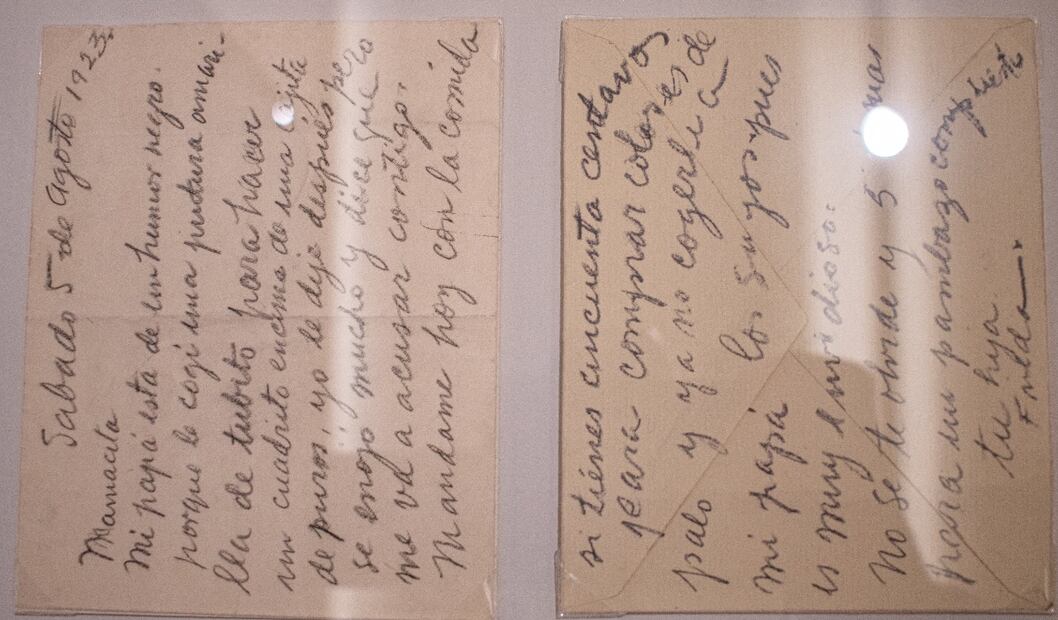 Sabado 5 de Agosto 1923.
Mamacita
Mi papá esta de un humor negro.
porque le cogí una pintura amari-
lla de tubito para hacer
un cuadrito encima de una cajita
de puros, yo le dije después pero
se enojó mucho y dice que
me va a acusar contigo.
Mandame hoy con la comida
si tiénes cincuenta centavos
para comprar colores de
palo y ya no cogerle a
mi papá los suyos pues
es muy envidioso.
No se te olvide y 5 mas
para un pambazo compuesto
tu hija
Frida.